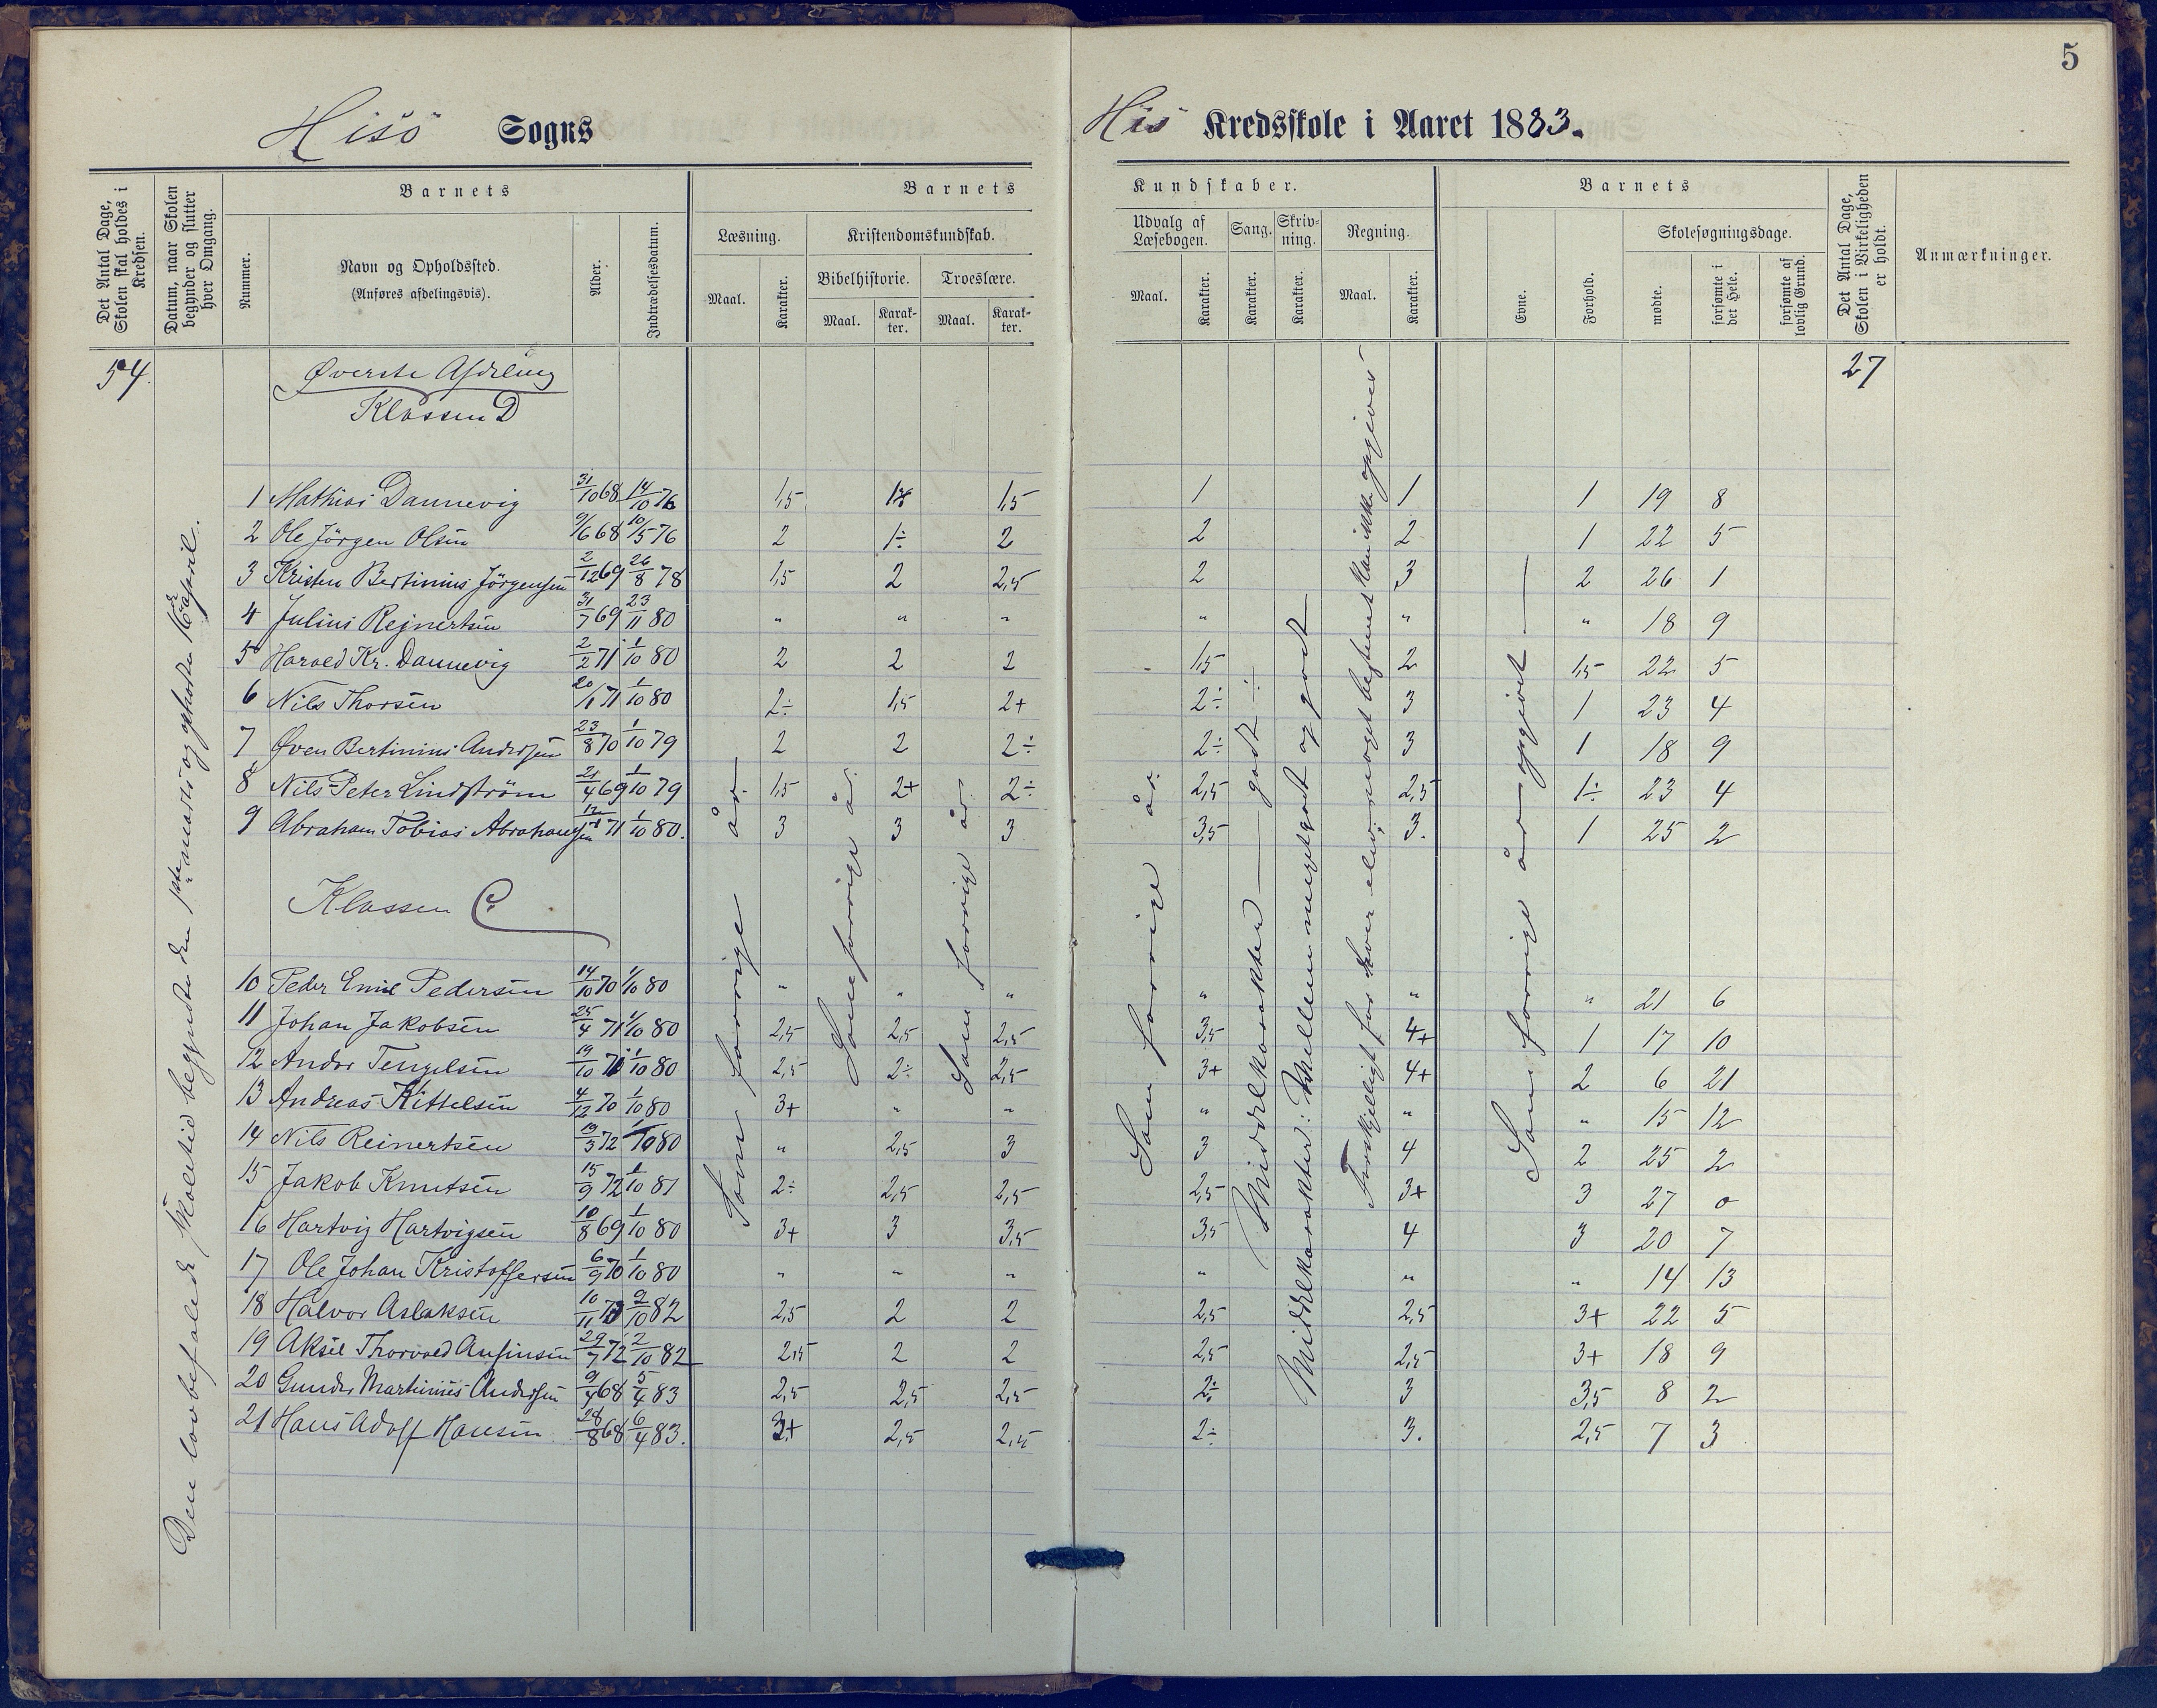 5
Hisö Sogns
His Kredsskole i Aaret 1883.
Det Antal Dage, Skolen skal holdes i Kredsen.
Datum, naar Skolen begynder og slutter hver Omgang.
Barnets
Nummer.
Navn og Opholdssted.
(Anføres afdelingsvis).
Alder.
Indtrædelsesdatum.
Barnets
Læsning.
Maal.
Karakter.
Kristendomskundskab.
Bibelhistorie.
Maal.
Karak-
ter.
Troeslære.
Maal.
Karak-
ter.
Kundskaber.
Udvalg af
Læsebogen.
Maal.
Karakter.
Sang.
Karakter.
Skriv-
ning.
Karakter.
Regning.
Maal.
Karakter.
Barnets
Evne.
Forhold.
Skolesøgningsdage.
mødte.
forsømte i det Hele.
forsømte af lovlig Grund.
Det Antal Dage, Skolen i Virkeligheden er holdt.
Anmærkninger.
54. 27
Øverste Afdeling
Klassen D
1 Mathias Dannevig 31/10 68 14/10 76 1,5 1,5 1 1 1 19 8
2 Ole Jörgen Olsen 9/6 68 10/5 76 2 1÷ 2 2 2 1 22 5
3 Kristen Bertinius Jörgensen 2/12 69 26/8 78 1,5 2 2,5 2 3 2 26 1
4 Julius Rejnertsen 31/7 69 23/11 80 " " " " " " 18 9
5 Harald Kr. Dannevig 2/2 71 1/10 80 2 2 2 1,5 2 1,5 22 5
6 Nils Thorsen 20/1 71 1/10 80 2÷ 1,5 2+ 2÷ 3 1 23 4
7 Öven Bertinius Andersen 23/8 70 1/10 79 2 2 2÷ 2÷ 3 1 18 9
8 Nils Peter Lindström 21/4 69 1/10 79 1,5 2+ 2÷ 2,5 2,5 1÷ 23 4
9 Abraham Tobias Abrahamsen 71 1/10 80. 3 3 3 3,5 3. 1 25 2
Klassen C.
10 Peder Emil Pedersen 14/10 70 1/10 80 " " " " " " 21 6
11 Johan Jakobsen 25/4 71 1/10 80 2,5 2,5 2,5 3,5 4+ 1 17 10
12 Andor Tengelsen 19/10 1/10 80 2,5 2÷ 2,5 3+ 4+ 2 6 21
13 Andreas Kittelsen 4/12 70 1/10 80 3+ " " " " " 15 12
14 Nils Reinertsen 13/3 72 1/10 80 " 2,5 3 3 4 2 25 2
15 Jakob Knutsen 15/9 72 1/10 81 2÷ 2,5 2,5 2,5 3+ 3 27 0
16 Hartvig Hartvigsen 10/8 69 1/10 80 3+ 3 3,5 3,5 4 3 20 7
17 Ole Johan Kristoffersen 6/9 70 1/10 80 " " " " " " 14 13
18 Halvor Aslaksen 10/11 2/10 82 2,5 2 2 2,5 2,5 3+ 22 5
19 Aksel Thorvald Ansinsen 29/7 72 2/10 82 2,5 2 2 2,5 2,5 3+ 18 9
20 Gunder Martinius Andersen 9/4 68 5/4 83 2,5 2,5 2,5 2÷ 3 3,5 8 2
21 Hans Adolf Hansen 28/8 68 6/4 83. 3+ 2,5 2,5 2÷ 3. 2,5 7 3
Den lovbefalede Skoletid begyndte den 1ste marts og ophørte april.
Som forrige år.
Som forrige år.
Som forrige år.
Som forrige år.
Middelkarakter — godt ÷
Middelkarakter: Mellem megetgodt og godt
Forskjelligt for hver elev; noget bestemt kan ikke opgives
Som forrige år opgivet